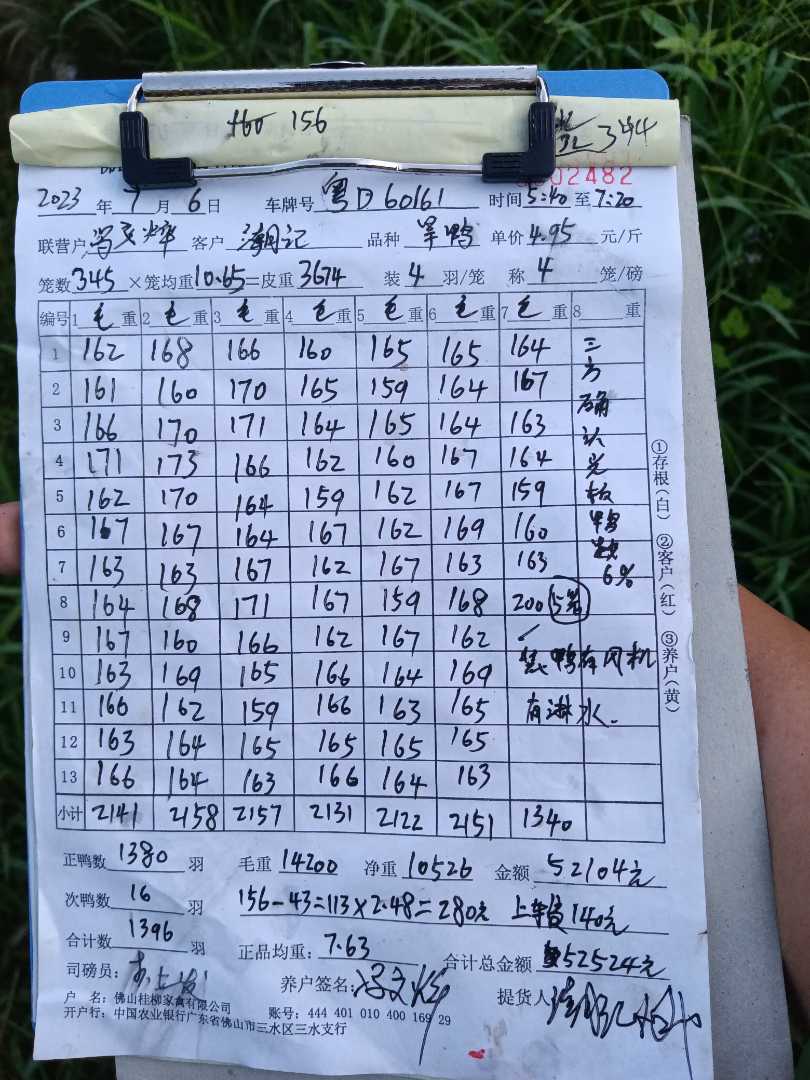 156
344
02482
2023年7月6日 车牌号粤D60161 时间5:40至7:20
联营户 客户 记 品种 鸭 单价4.95元/斤
笼数345×笼均重10.65=皮重3674 装4羽/笼 称4笼/磅
编号 1毛重 2毛重 3毛重 4毛重 5毛重 6毛重 7毛重 8重
1 162 168 166 160 165 165 164
2 161 160 170 165 159 164 167
3 166 170 171 164 165 164 163
4 171 173 166 162 160 167 164
5 162 170 164 159 162 167 159
6 167 167 164 167 162 169 160
7 163 163 167 162 167 163 163
8 164 168 171 167 159 168 200 5笼
9 167 160 166 162 167 162
10 163 169 165 166 164 169
11 166 162 159 166 163 165
12 163 164 165 165 165 165
13 166 164 163 166 164 163
小计 2141 2158 2157 2131 2122 2151 1340
三方确认光板鸭数6%
装鸭有风机
有淋水.
①存根(白) ②客户(红) ③养户(黄)
正鸭数1380羽 毛重14200 净重10526 金额52104元
次鸭数16羽 156-43=113×2.48=280元 上车费140元
合计数1396羽 正品均重:7.63 合计总金额52524元
司磅员: 养户签名:冯文 提货人
户 名:佛山桂柳家禽有限公司 账号:444 401 010 400 169 29
开户行:中国农业银行广东省佛山市三水区三水支行